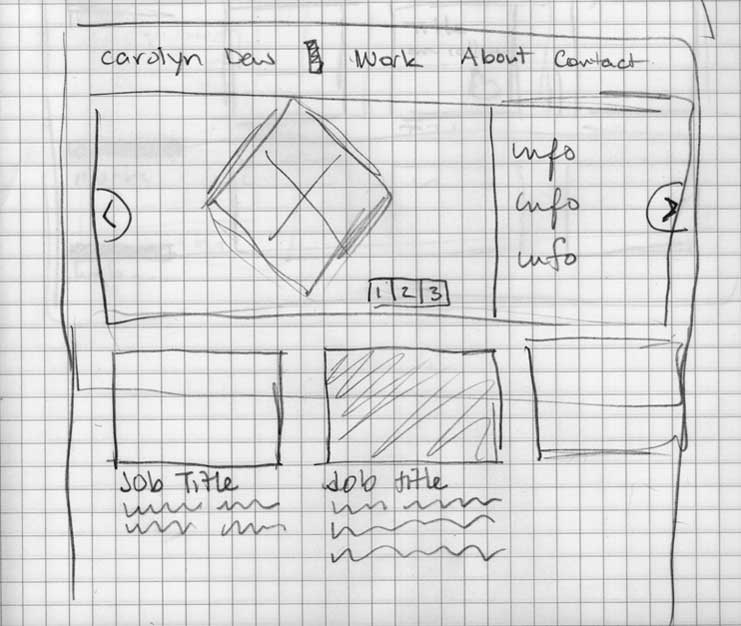 carolyn Dew Work About Contact
<
info
info
info
>
1 2 3
Job Title
Job title